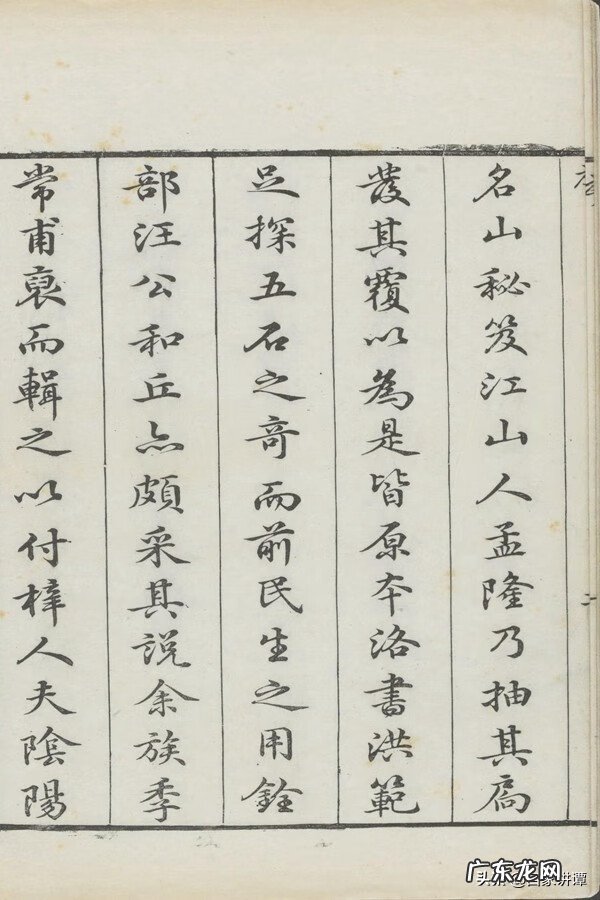 名山秘笈江山人孟隆乃抽其扃
發其覆以為是皆原本洛書洪範
足探五石之奇而前民生之用銓
部汪公和丘亦頗采其說余族季
常甫裒而輯之以付梓人夫陰陽
广东龙网